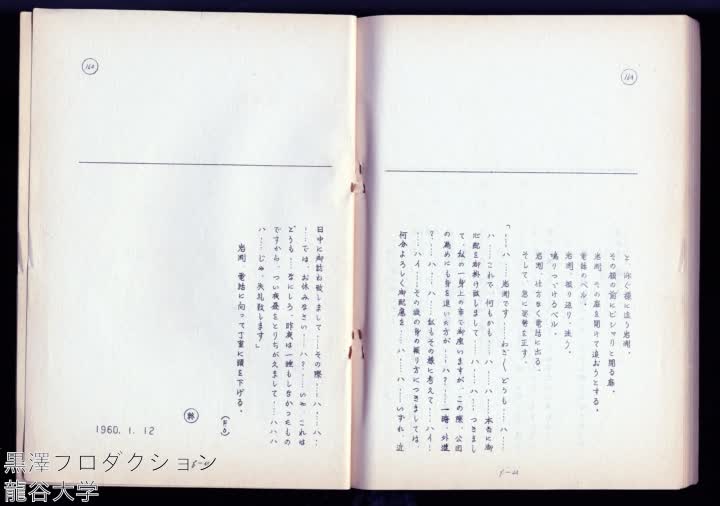 と、泳ぐ様に追う岩渕。
その顔の前にピシャリと閉る扉。
岩渕、その扉を開けて追おうとする。
電話のベル。
岩渕、振り返り、迷う。
鳴りつづけるベル。
岩渕、仕方なく電話に出る。
そして、急に姿勢を正す。
「……ハ……岩渕です……わざわざどうも……ハ……
ハ……これで、何もかも……ハ……ハ……本当に御
心配を御掛け致しまして……ハ……ハ……つきまし
て、私の一身上の事で御座いますが、この際、公団
の為めにも身を退いた方が……ハ？……一時、外遊
？……ハ……ハ……私もその様に考えて……ハイ…
……ハイ……その後の身の振り方につきましては、
何分よろしく御配慮を……ハ……ハ……いずれ、近
164
日中に御訪ね致しまして……その際……ハ……ハ、
……では、お休みなさい……ハ？……いや、これは
どうも……なにしろ、昨夜は一睡もしなかったもの
ですから、つい夜昼をとりちがえまして……ハハハ
ハ……じゃ、失礼致します」
岩渕、電話に向って丁寧に頭を下げる。
(F・O)
終
1960. 1. 12
黒澤プロダクション
龍谷大学